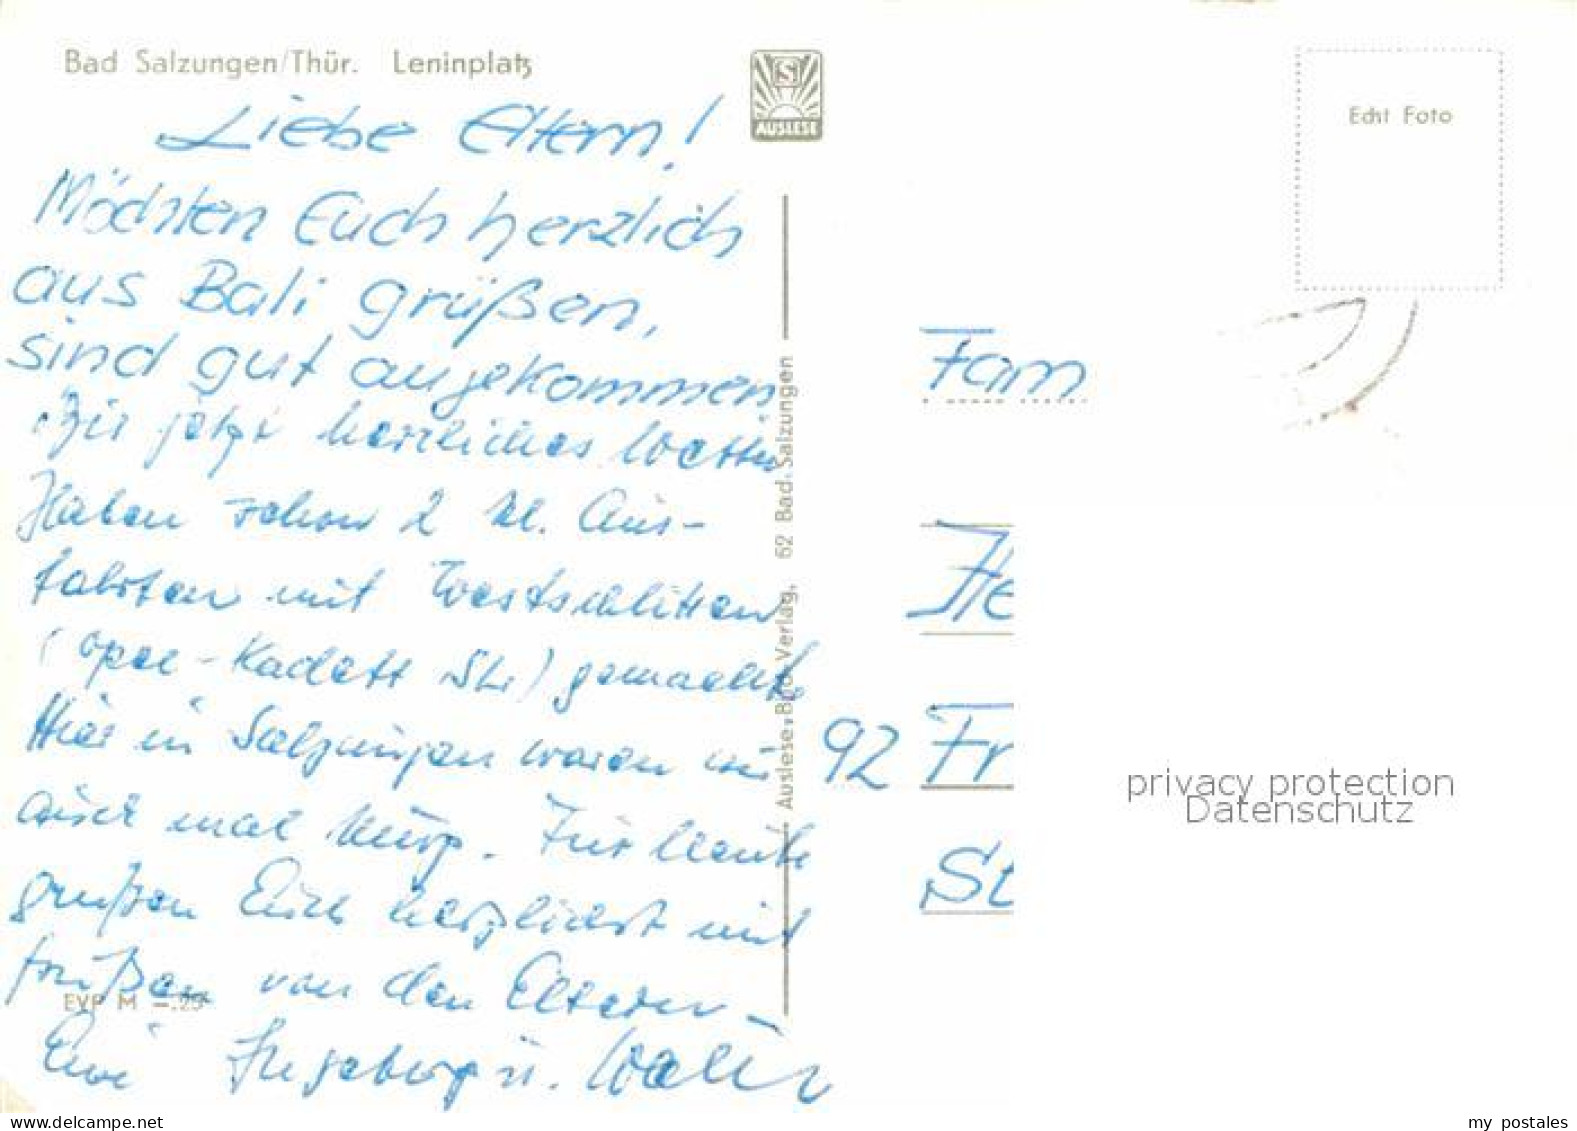 Bad Salzungen/Thür. Leninplatz
S
AUSLESE
Echt Foto
Liebe Eltern!
Möchten Euch herzlich
aus Bali grüßen,
sind gut angekommen.
Bis jetzt herrliches Wetter
Haben schon 2 kl. Aus-
fahrten mit Westschlitten
(Opel-Kadett) gemacht.
Hier in Salzungen waren wir
auch mal kurz. Für heute
grüßen Euch herzlichst mit
Grüßen von den Eltern -
Eure Ingeborg u. Walter
EVP M -.25
Auslese-Bild-Verlag, 62 Bad Salzungen
Fam
He
92 Fr
St
privacy protection
Datenschutz
my postales